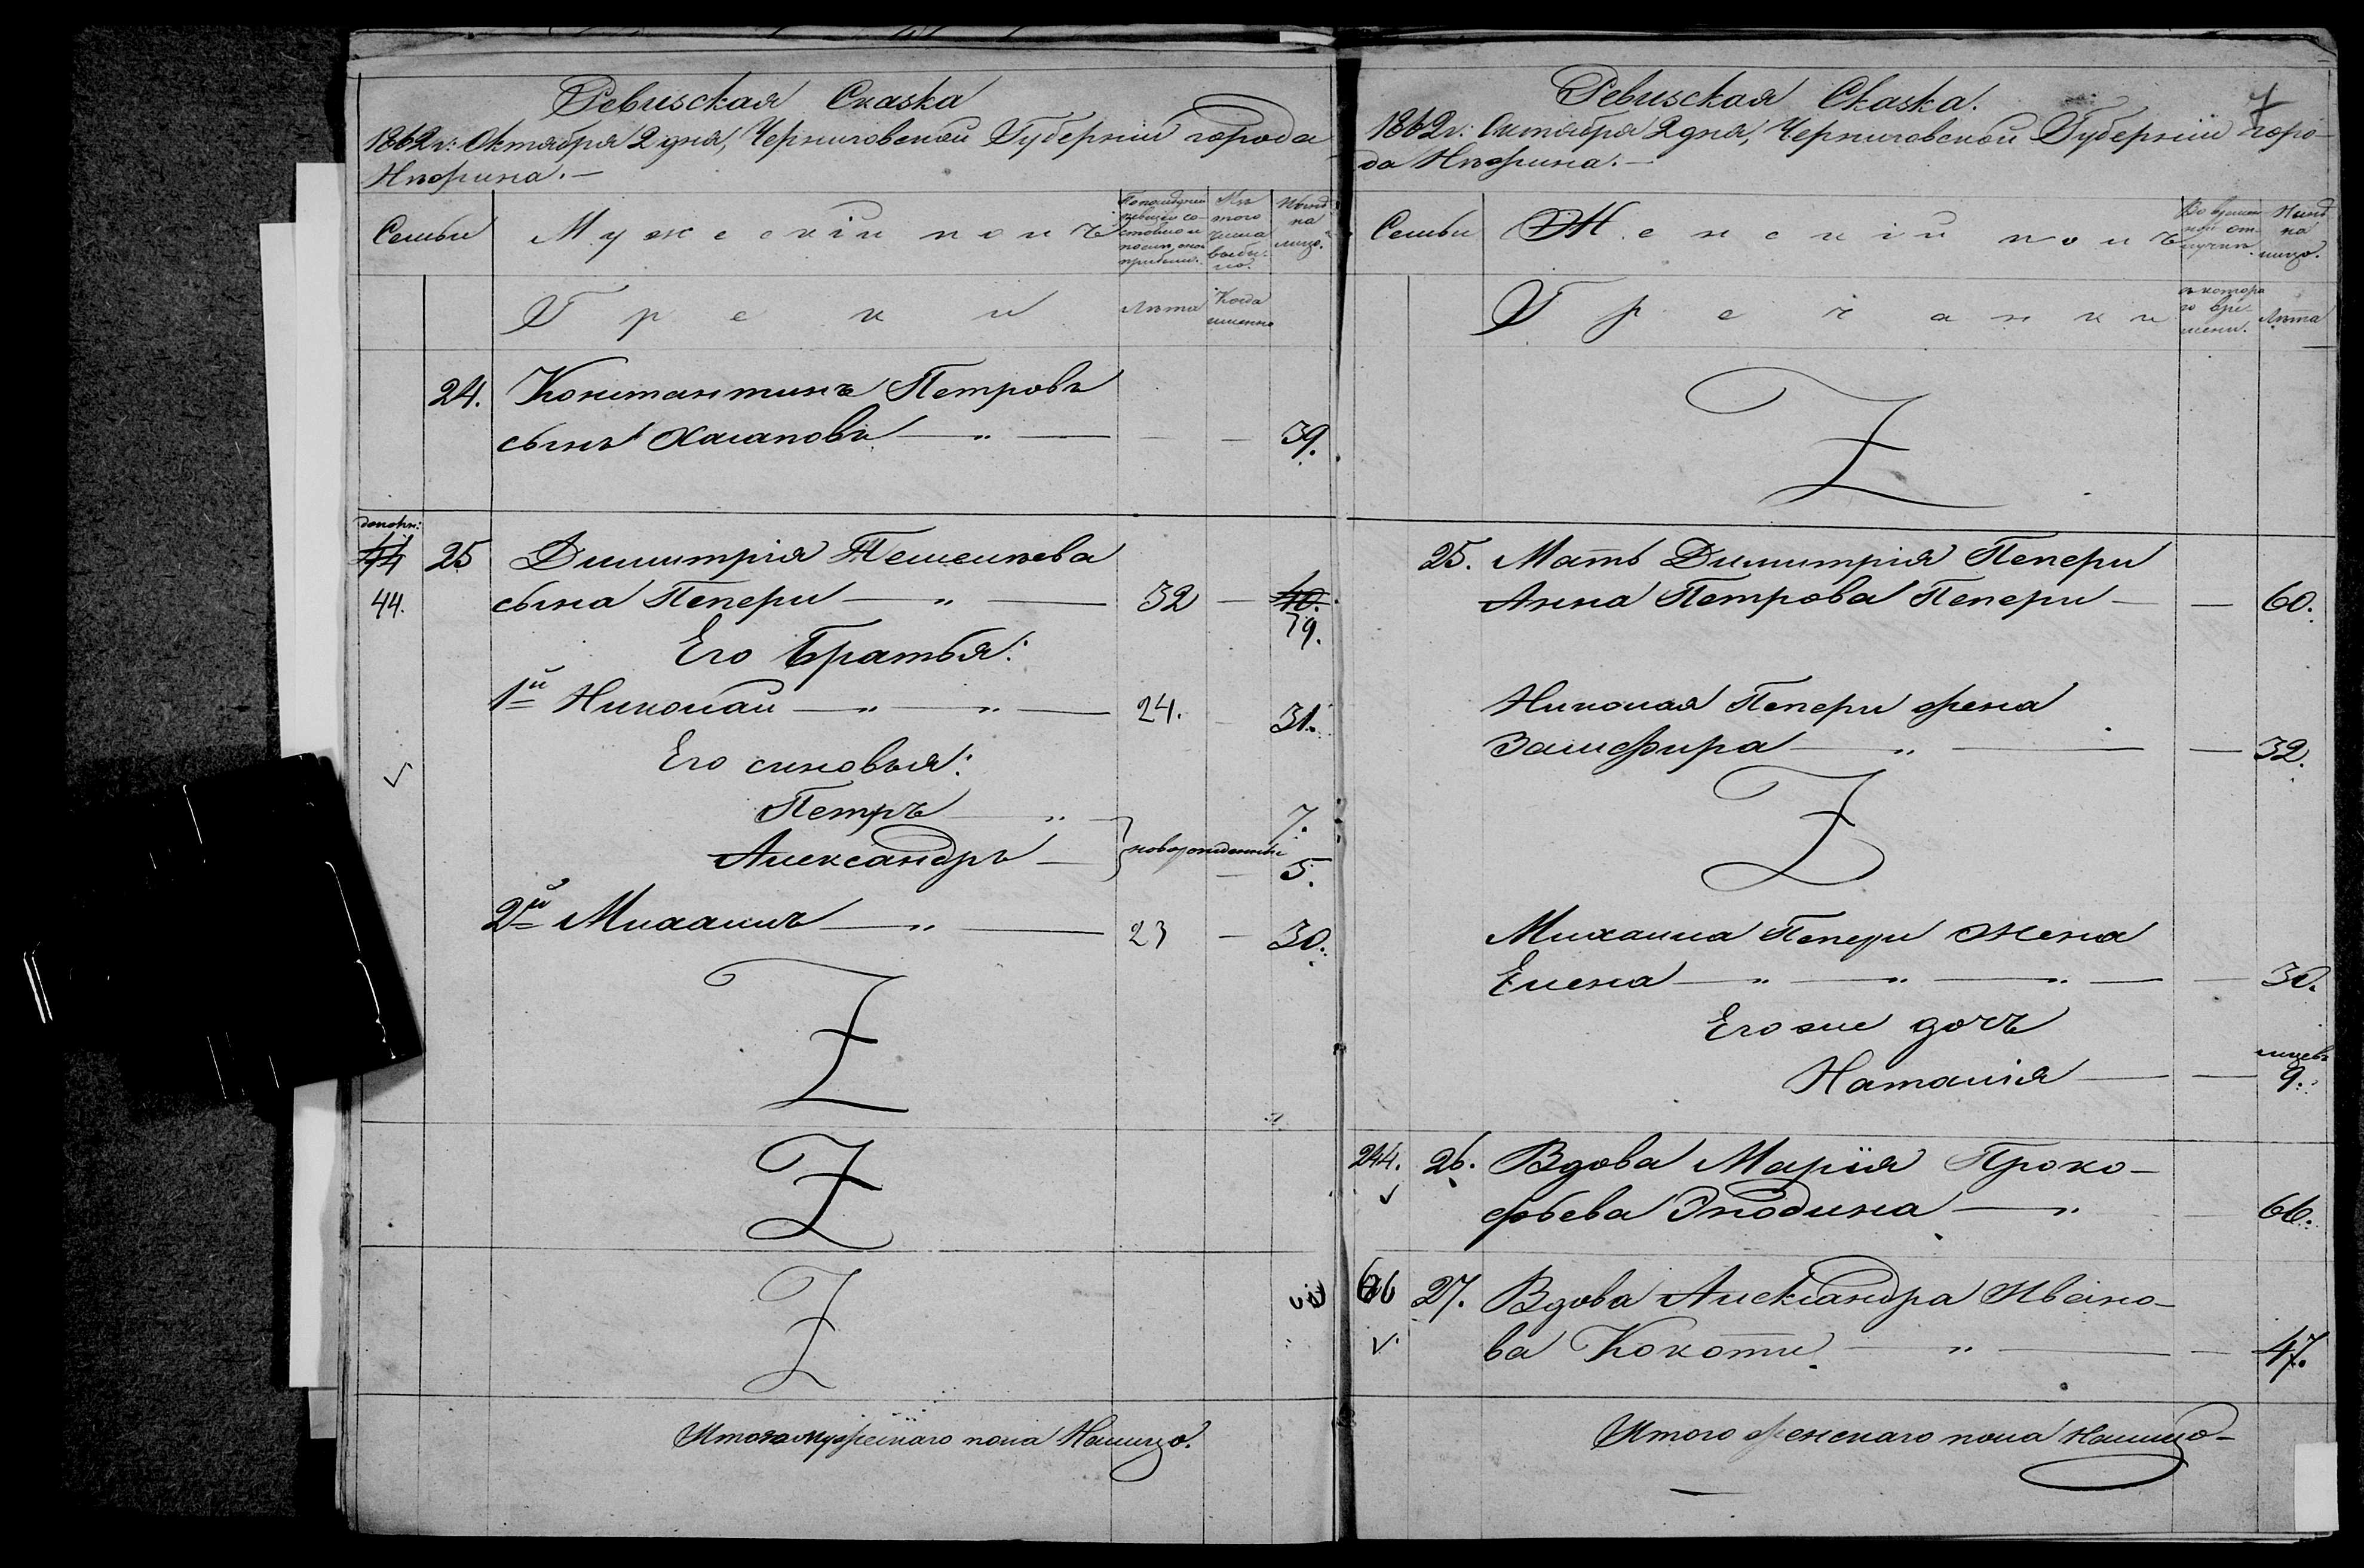 Ревизская Сказка
1862 г: Октября 2 дня, Черниговской Губерніи города
Нѣжина.—
Семьи
Мужескій полъ
По последней ревизіи со- стояло и после оной прибыло.
Изъ того числа выбы- ло.
Нынѣ на лицо.
Греки
Лѣта
Когда именно
24. Константинъ Петровъ
сынъ — " — 39.
дополн:
44 25 Димитрія
44. сына Пепери — " — 32 — 40.
39.
Его Братья:
1й Николай — " — " — 24. 31.
Его синовья:
Петръ — " — 7.
Александръ — новорожденніе 5.
2й Михаилъ — " — 23 — 30.
Итого мужескаго пола Налицо.
7
Ревизская Сказка.
1862 г: Октября 2 дня, Черниговской Губерніи горо-
да Нѣжина.—
Семьи
Женскій полъ
Во времен- ной от- лучкѣ.
Нынѣ на лицо.
Гречанки
съ котора го вре- мени.
Лѣта
25. Мать Димитрія Пепери
Анна Петрова Пепери — — 60.
Николая Пепери жена
Замфира — " — — 32.
Михаила Пепери жена
Елена — " — " — " — — 30.
Егоже дочъ
Наталія — — 9.
244. 26. Вдова Марія Проко-
фьева — " 66.
66 27. Вдова Александра Ивано-
ва Кокоти — " — — 47.
Итого женскаго пола Налицо—